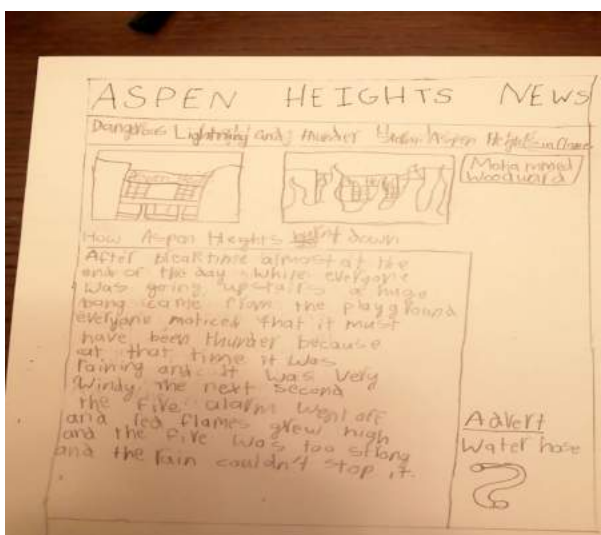 ASPEN HEIGHTS NEWS
Dangrous Lightning and thunder Aspen Heights in flames
Mohammed
Woodward
How Aspen Heights burnt down
After breaktime almost at the
end of the day while everyone
was going upstairs a huge
bang came from the playground
everyone notices that it must
have been thunder because
at that time it was
raining and it was very
windy the next second
the fire alarm went off
and red flames grew high
and the fire was too strong
and the rain couldn't stop it.
Advert
Water hose